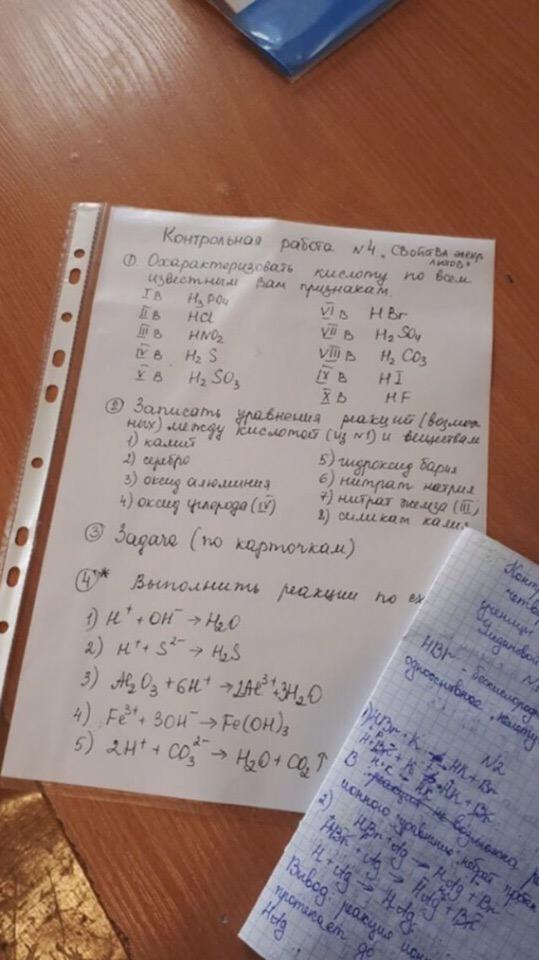 Контрольная работа №4. Свойства электр
литов.
① Охарактеризовать кислоту по всем
известным Вам признакам.
I В H₃PO₄
II В HCl
III В HNO₂
IV В H₂S
V В H₂SO₃
VI В HBr
VII В H₂SO₄
VIII В H₂CO₃
IX В HI
X В HF
② Записать уравнения реакций (возмож
ных) между кислотой (из №1) и веществам
1) калий
2) серебро
3) оксид алюминия
4) оксид углерода (IV)
5) гидроксид бария
6) нитрат натрия
7) нитрат железа (III)
8) силикат калия
③ Задача (по карточкам)
④* Выполнить реакции по сх
1) H⁺ + OH⁻ → H₂O
2) H⁺ + S²⁻ → H₂S
3) Al₂O₃ + 6H⁺ → 2Al³⁺ + 3H₂O
4) Fe³⁺ + 3OH⁻ → Fe(OH)₃
5) 2H⁺ + CO₃²⁻ → H₂O + CO₂↑
Конт
четвер
ученицы
HBr - бескислород
одноосновная
№2
1) HBr + K → HK + Br
реакция не возможна
2) HBr + Ag → HAg + Br
H + Ag → HAg
Вывод реакция
протекает до
HAg